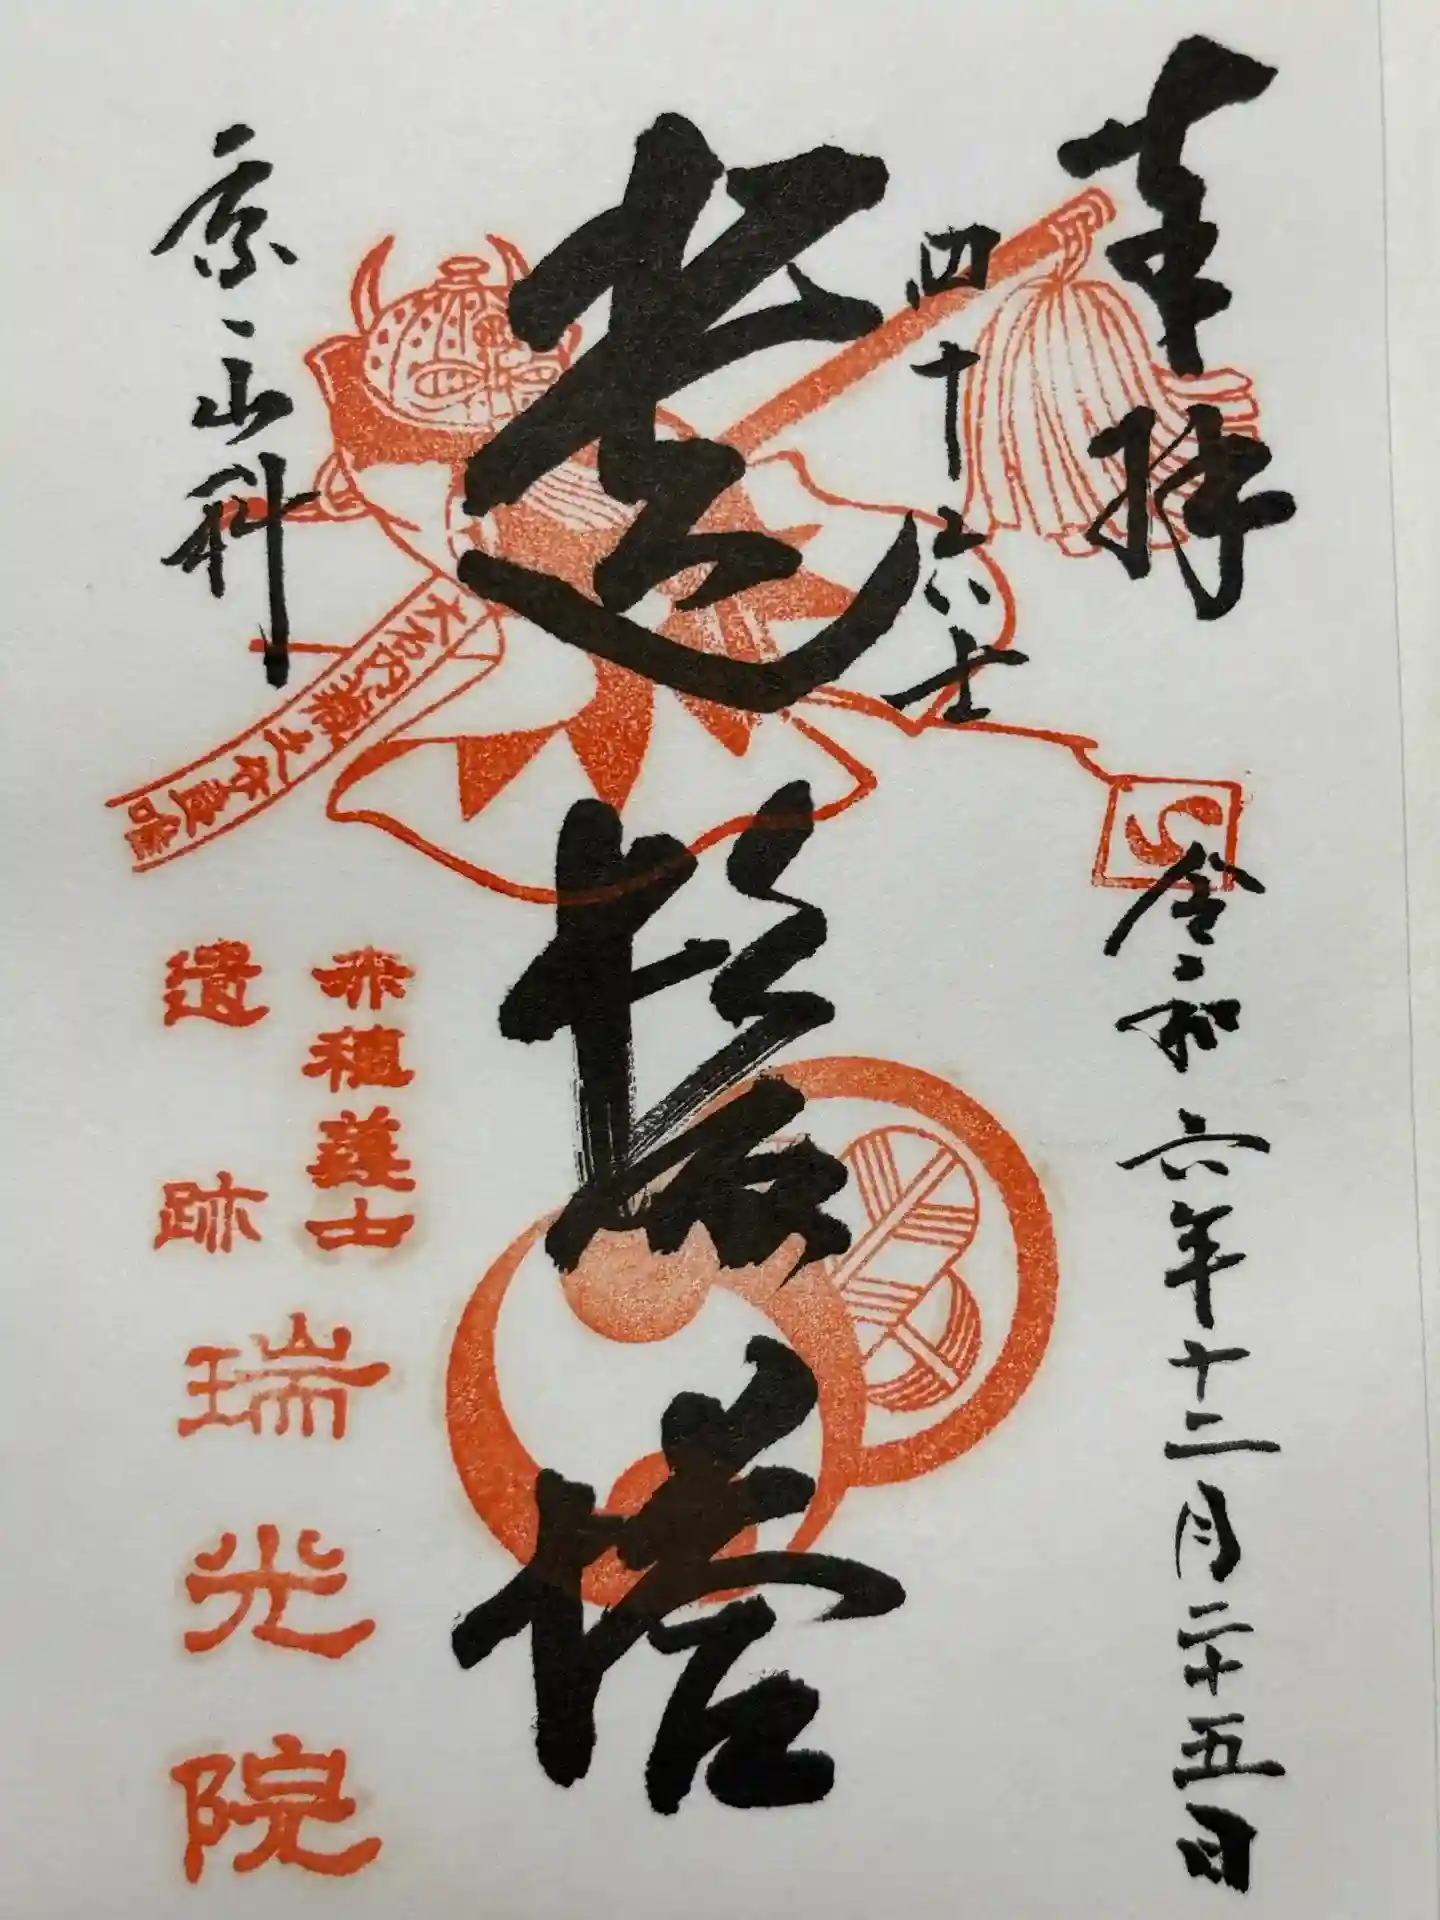 奉拝
令和六年十二月二十五日
四十六士
遺髪塔
京山科
大石内蔵之介良雄
赤穂義士
遺跡
瑞光院